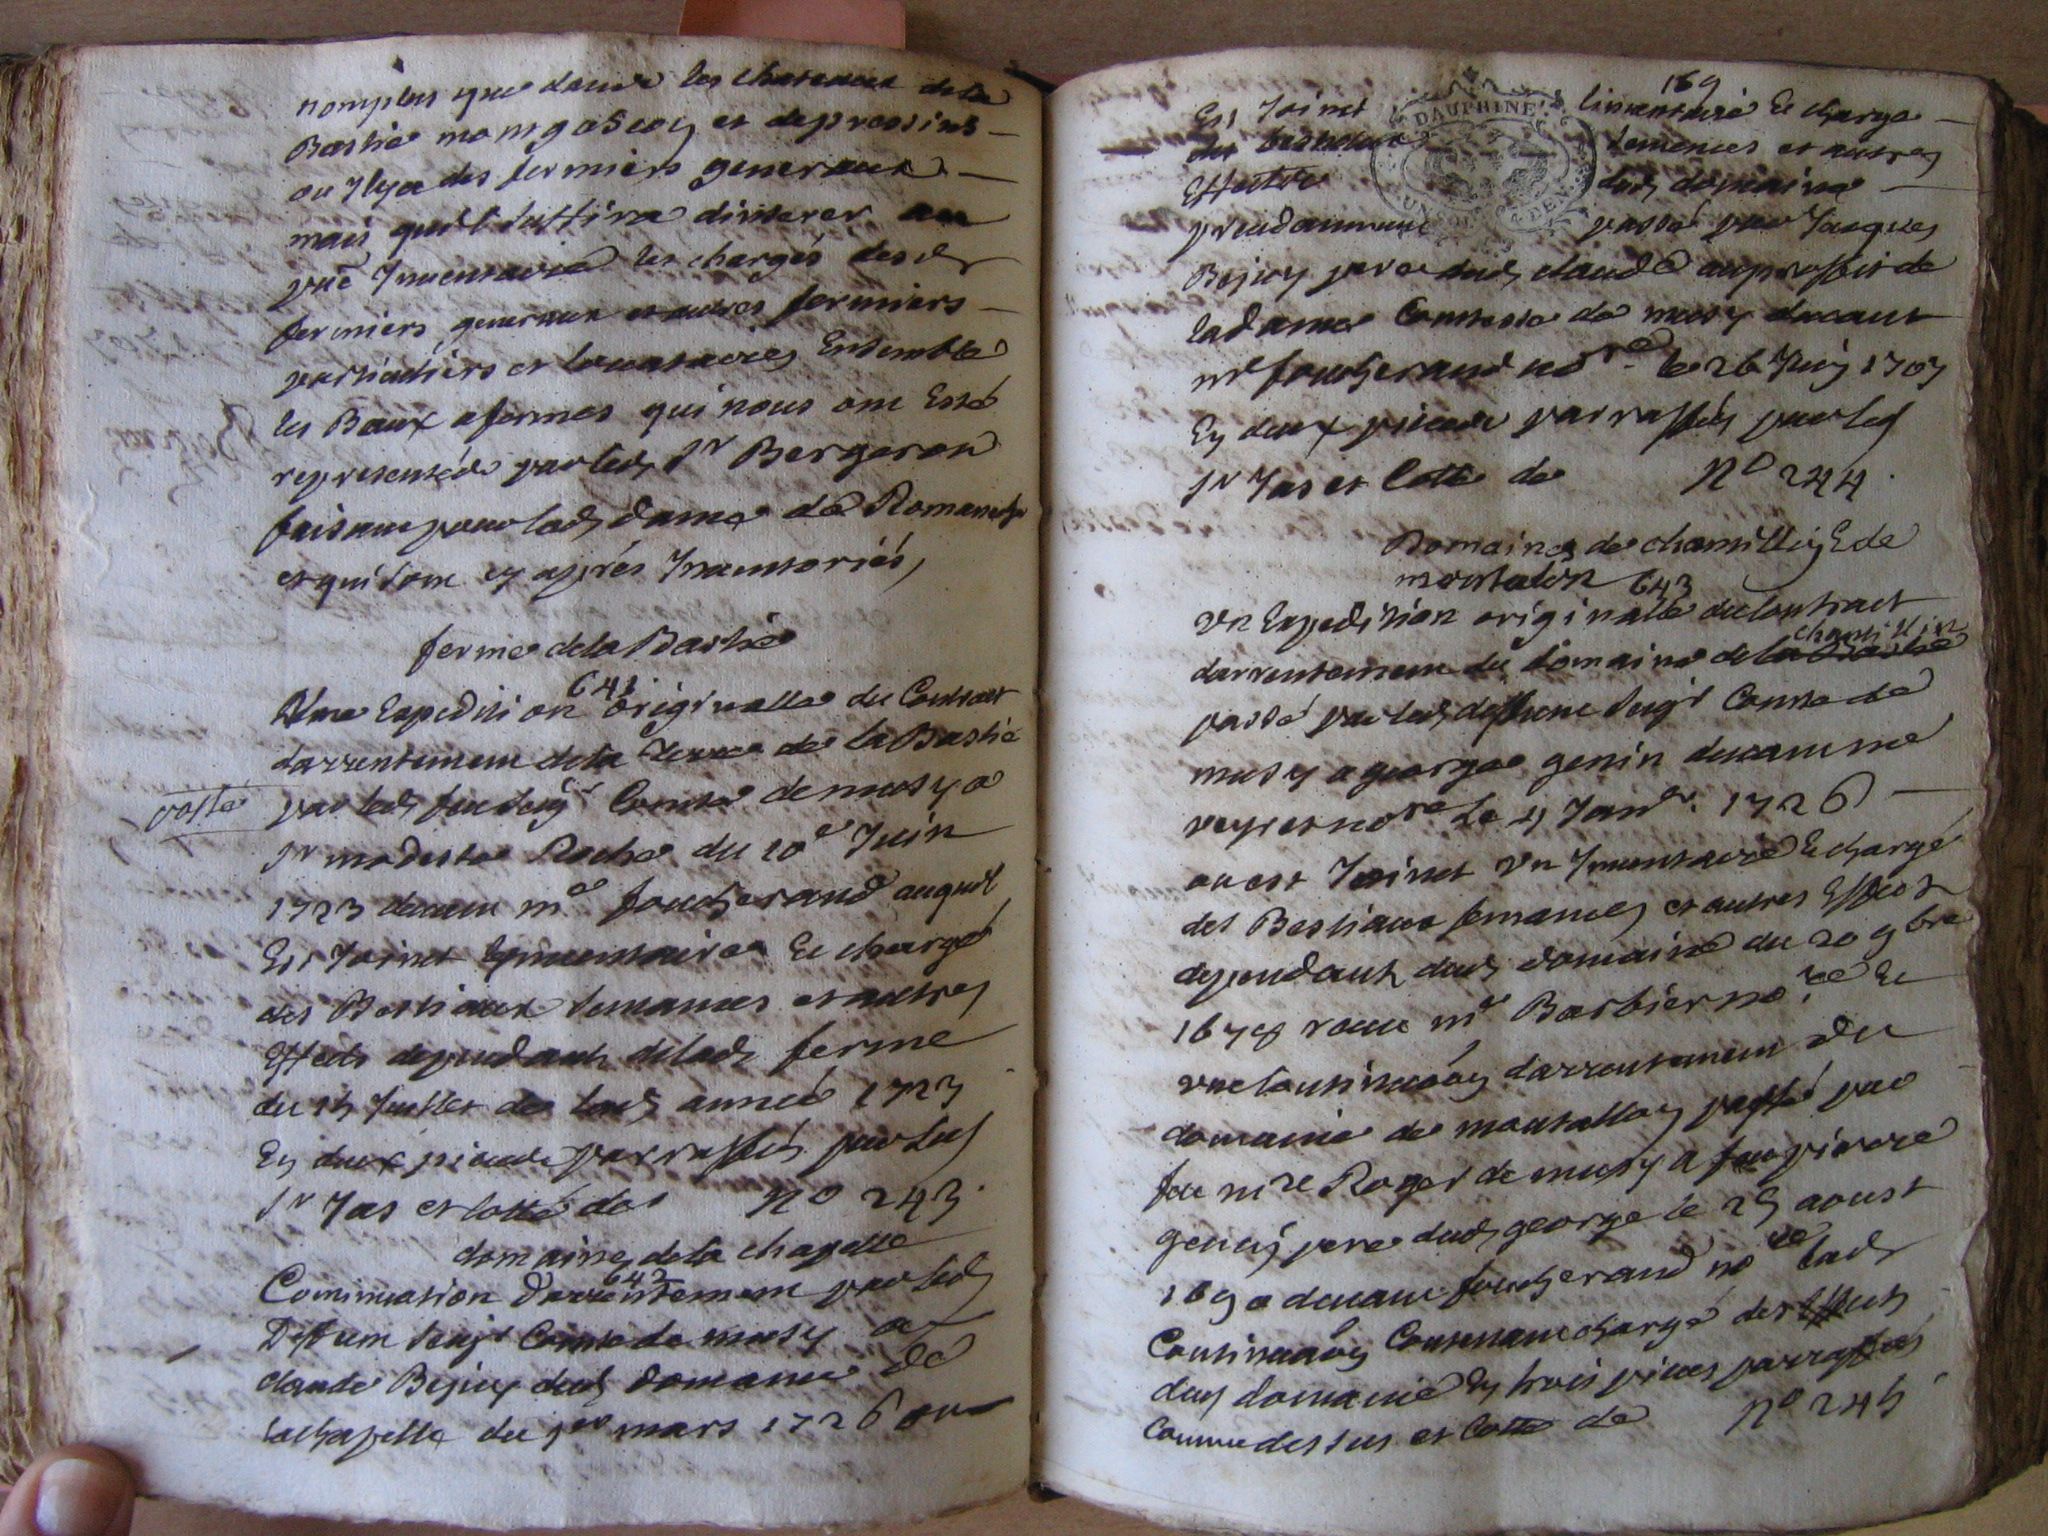 nomplus que dans les chateaux de la
Bastie montgascon et depressins
ou Ilya des fermiers generaux
mais quil suffira dinserer au
pnt Inventaire les charges desd
fermiers generaux et autres fermiers
particuliers et locataires Ensemble
les Baux afermes qui nous ont Esté
representéds par led Sr Bergeron
faisant pour lad dame de Romanesche
et qui sont cy aprés Inventoriés,
ferme de la Bastie
641
Une Expedition originalle du Contract
darrentement de la Terre de la Bastie
passé
par led feu seigr Comte de musy a
Sr modeste Roche du 20e Juin
1723 devant me foucherand auquel
Est Joinct Linventaire Et charge
des Bestiaux semances et autres
Effects dependants delad ferme
du 15 Juillet de lad année 1723
En deux pieces parraffés par led
Sr Jas et cotté de n° 243.
domaine de la chapelle
642
Continuation darrentement par led
Deffunt seigr Comte de musy a
claude Bejuy dud domaine de
lachapelle du 1er mars 1726 ou
169
Est Joinct linventaire Et charge
des bestiaux semences et autres
Effects dud domaine
DAUPHINE
prudamment passé par Jacques
Bejuy pere dud claude auproffit de
ladame Comtesse de musy devant
me foucherand nore le 26 Juin 1707
En deux pieces parraffés par led
Sr Jas et Cotté de N° 244.
Domaines de chamillin Et de
montalon 643
Un Expedition originalle du Contract
chamillin
darrentement du domaine de la Bastie
passé par led deffunt seigr Comte de
musy a george genin devant me
veyret nore Le 4 Janer. 1726
ou est Joinct Un Inventaire Et charge
des Bestiaux semances et autres Effects
dependants dud domaine du 20 9bre
1678 receu me Barbier nore Et
une Continuaon darrentement du
domaine de montallon passé par
feu mre Roger de musy a feu pierre
genin pere dud george le 29 aoust
1690 devant foucherand nore lad
Continuaon Contenant charge des Effects
dud domaine En trois pieces parraffés
Comme dessus et Cotté de N° 245